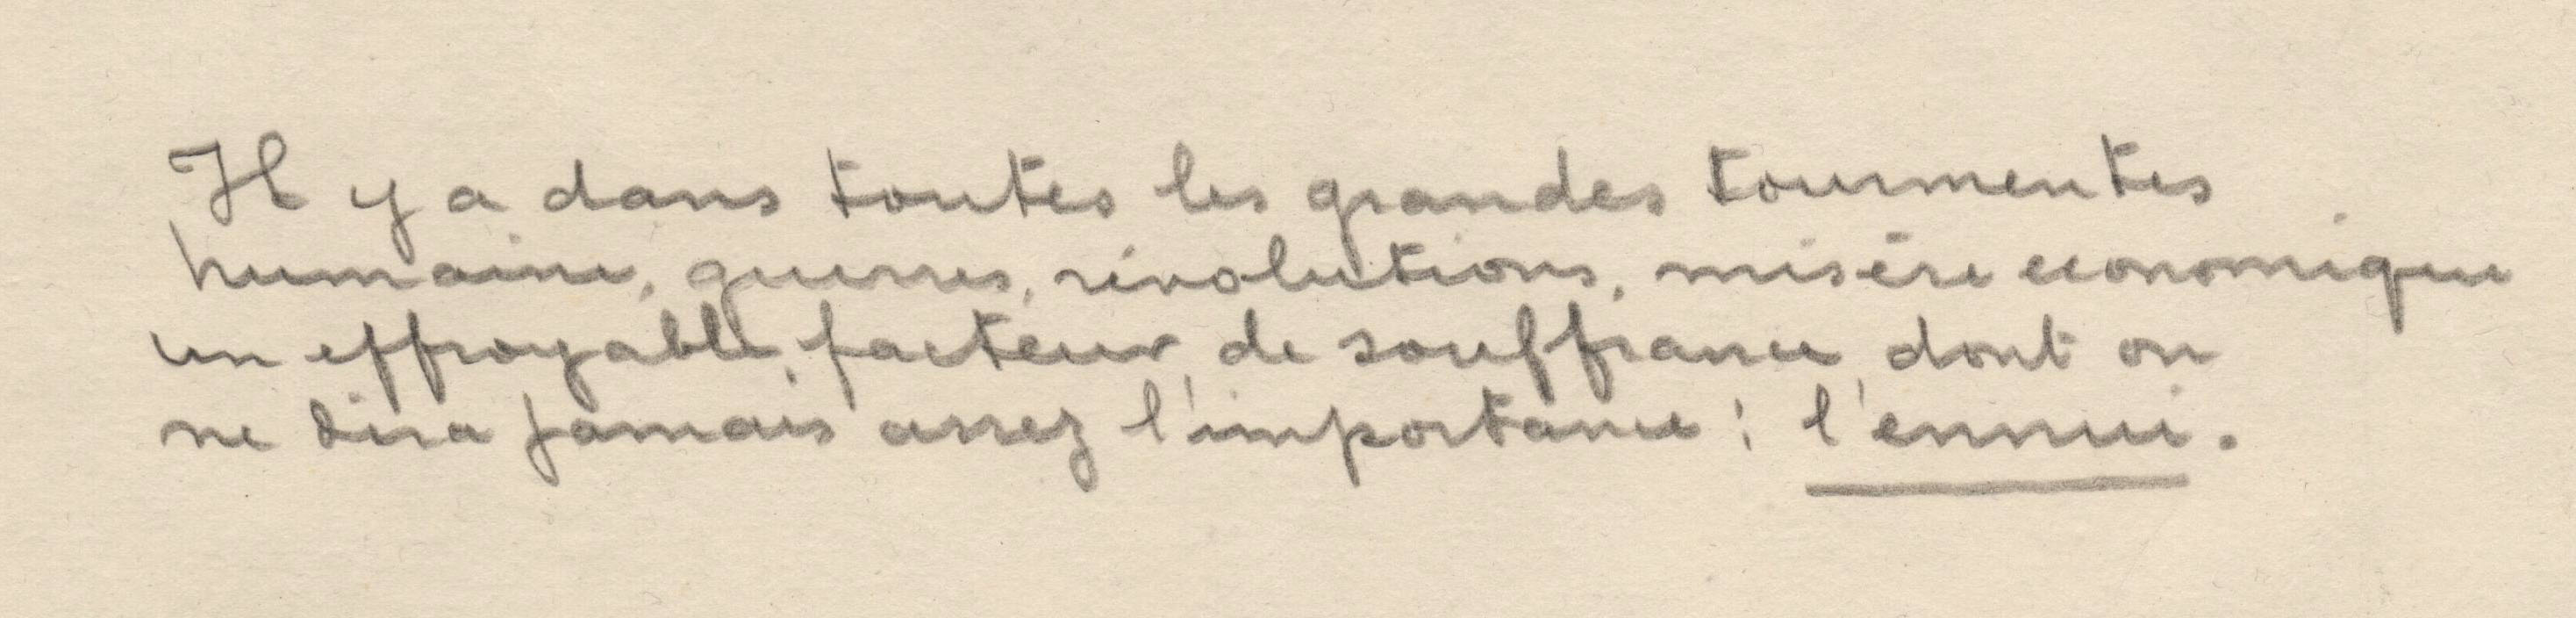 Il y a dans toutes les grandes tourmentes
humaine, guerres, révolutions, misère economique
un effroyable facteur de souffrance dont on
ne dira jamais assez l'importance : l'ennui.